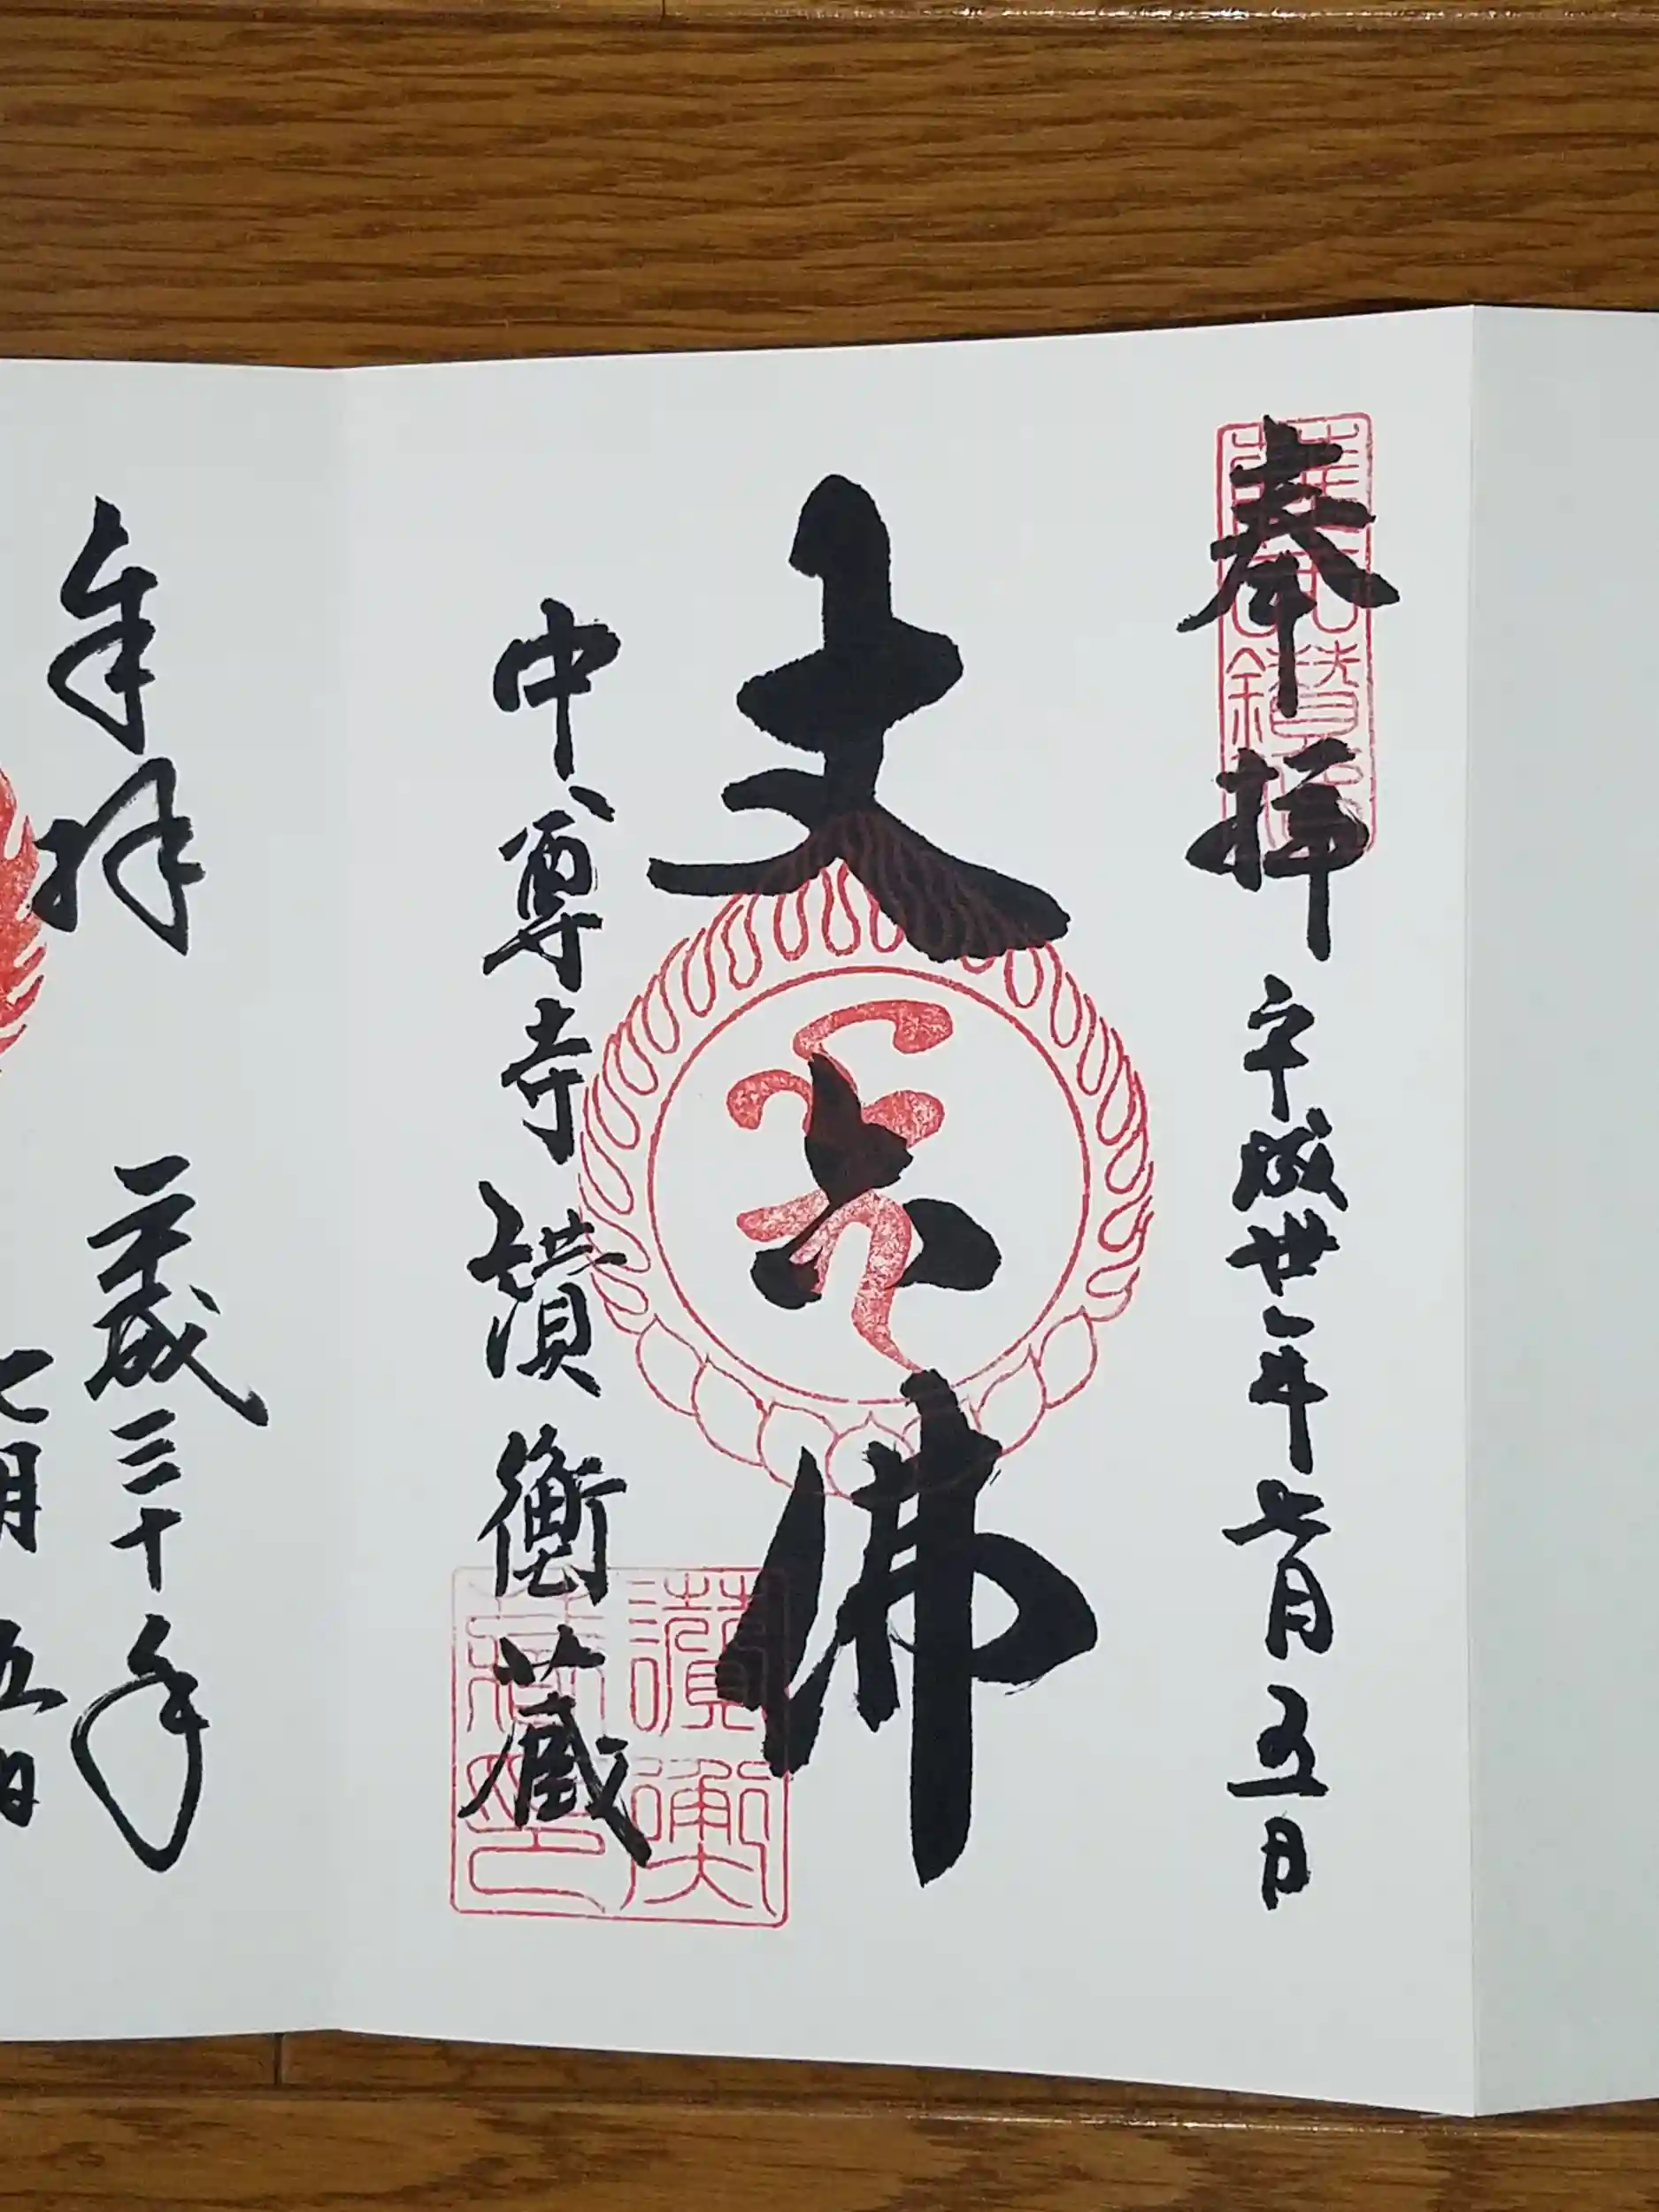 奉拝 平成卅年七月五日
丈六佛
中尊寺 讃衡蔵
奉拝 平成三十年
七月五日